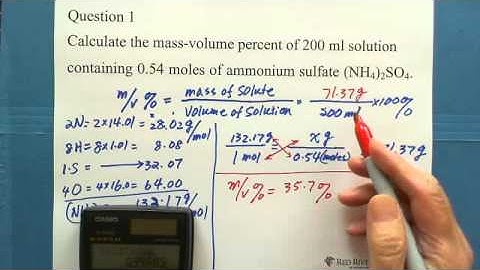 Question 1
Calculate the mass-volume percent of 200 ml solution
containing 0.54 moles of ammonium sulfate (NH4)2SO4.
m/v % = mass of solute / Volume of solution = 71.37g / 200 ml × 100%
2N = 2×14.01 = 28.02 g/mol
8H = 8×1.01 = 8.08
1S → 32.07
4O = 4×16.0 = 64.00
132.17g/mol
132.17g / 1 mol = x g / 0.54 (moles)
71.37g
m/v % = 35.7%
CASIO
RED RIVER